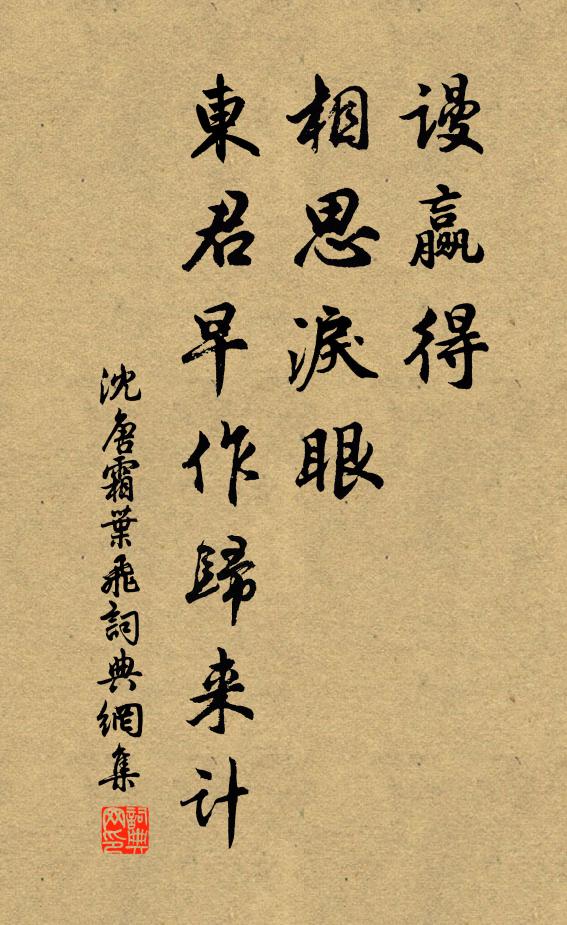 謾贏得
相思淚眼
東君早作歸来计
沈唐霜葉飛詞典網集
詞典网印